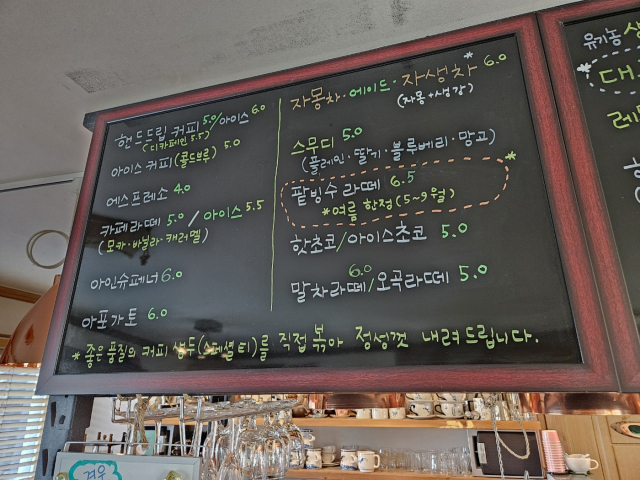 핸드드립 커피 5.0/아이스 6.0
(디카페인 5.5)
아이스 커피(콜드브루) 5.0
에스프레소 4.0
카페라떼 5.0 / 아이스 5.5
(모카·바닐라·캐러멜)
아인슈페너 6.0
아포가토 6.0
자몽차·에이드·자생차* 6.0
(자몽+생강)
스무디 5.0
(플레인·딸기·블루베리·망고)
팥빙수 라떼 6.5 *
*여름 한정(5~9월)
핫초코/아이스초코 5.0
말차라떼 6.0/오곡라떼 5.0
* 좋은 품질의 커피 생두(스페셜티)를 직접 볶아 정성껏 내려드립니다.
유기농